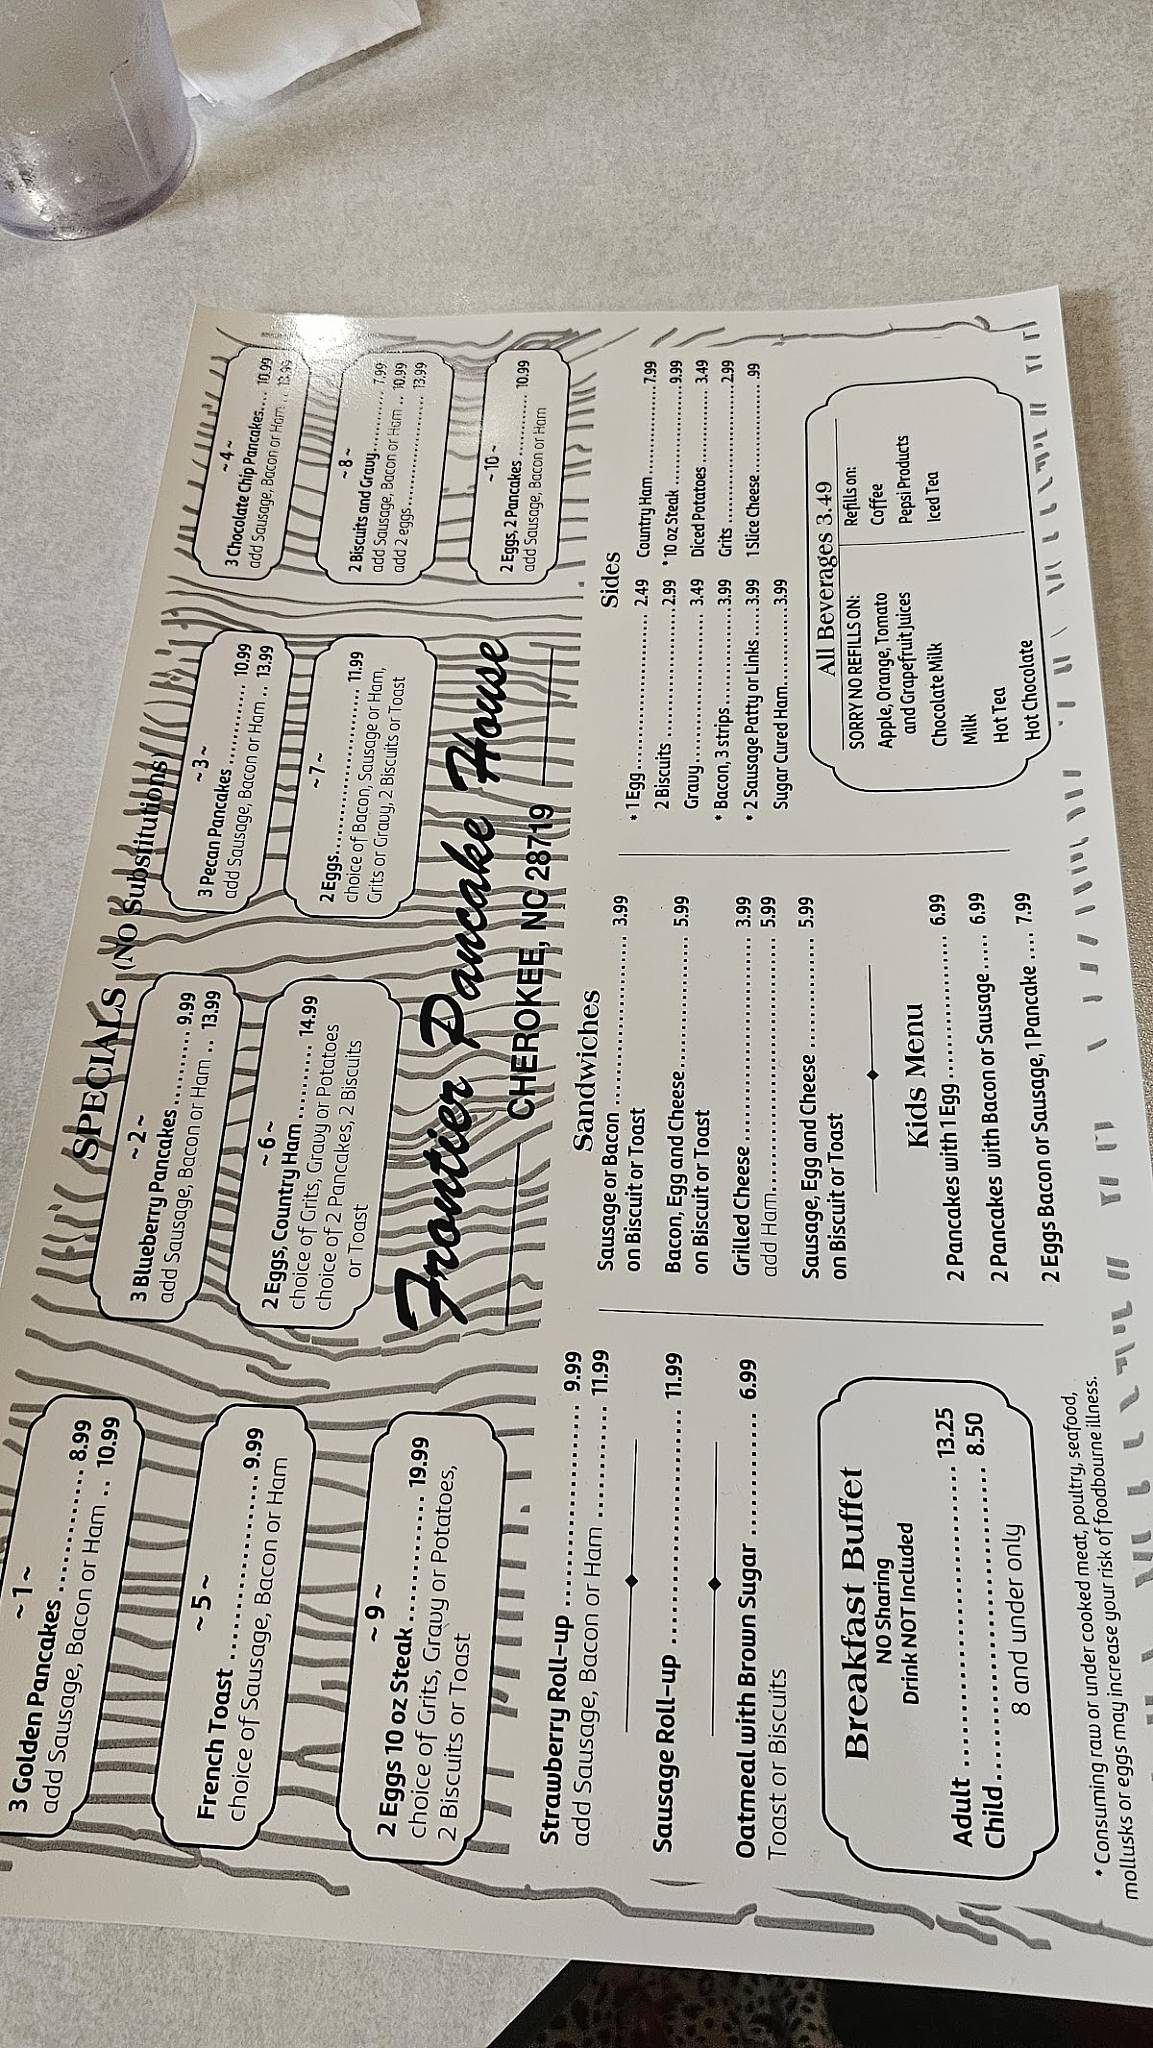 SPECIALS (No Substitutions)
~ 1 ~
3 Golden Pancakes ............ 8.99
add Sausage, Bacon or Ham .. 10.99
~ 2 ~
3 Blueberry Pancakes .......... 9.99
add Sausage, Bacon or Ham .. 13.99
~ 3 ~
3 Pecan Pancakes ........... 10.99
add Sausage, Bacon or Ham .. 13.99
~ 4 ~
3 Chocolate Chip Pancakes.... 10.99
add Sausage, Bacon or Ham .. 13.99
~ 5 ~
French Toast .................... 9.99
choice of Sausage, Bacon or Ham
~ 6 ~
2 Eggs, Country Ham .......... 14.99
choice of Grits, Gravy or Potatoes
choice of 2 Pancakes, 2 Biscuits
or Toast
~ 7 ~
2 Eggs......................... 11.99
choice of Bacon, Sausage or Ham,
Grits or Gravy, 2 Biscuits or Toast
~ 8 ~
2 Biscuits and Gravy............ 7.99
add Sausage, Bacon or Ham .. 10.99
add 2 eggs...................... 13.99
~ 9 ~
2 Eggs 10 oz Steak............. 19.99
choice of Grits, Gravy or Potatoes,
2 Biscuits or Toast
~ 10 ~
2 Eggs, 2 Pancakes ........... 10.99
add Sausage, Bacon or Ham
Frontier Pancake House
CHEROKEE, NC 28719
Strawberry Roll-up .................... 9.99
add Sausage, Bacon or Ham ........... 11.99
Sausage Roll-up ....................... 11.99
Oatmeal with Brown Sugar ............ 6.99
Toast or Biscuits
Breakfast Buffet
NO Sharing
Drink NOT Included
Adult ............................... 13.25
Child................................ 8.50
8 and under only
Sandwiches
Sausage or Bacon ....................... 3.99
on Biscuit or Toast
Bacon, Egg and Cheese.................. 5.99
on Biscuit or Toast
Grilled Cheese .......................... 3.99
add Ham................................ 5.99
Sausage, Egg and Cheese .............. 5.99
on Biscuit or Toast
Kids Menu
2 Pancakes with 1 Egg ................. 6.99
2 Pancakes with Bacon or Sausage ..... 6.99
2 Eggs Bacon or Sausage, 1 Pancake .... 7.99
Sides
* 1 Egg ....................... 2.49
2 Biscuits .................... 2.99
Gravy........................ 3.49
* Bacon, 3 strips............... 3.99
* 2 Sausage Patty or Links ..... 3.99
Sugar Cured Ham............ 3.99
Country Ham............... 7.99
* 10 oz Steak ................. 9.99
Diced Potatoes ............. 3.49
Grits ........................ 2.99
1 Slice Cheese............... .99
All Beverages 3.49
SORRY NO REFILLS ON:
Apple, Orange, Tomato
and Grapefruit Juices
Chocolate Milk
Milk
Hot Tea
Hot Chocolate
Refills on:
Coffee
Pepsi Products
Iced Tea
* Consuming raw or under cooked meat, poultry, seafood,
mollusks or eggs may increase your risk of foodbourne illness.